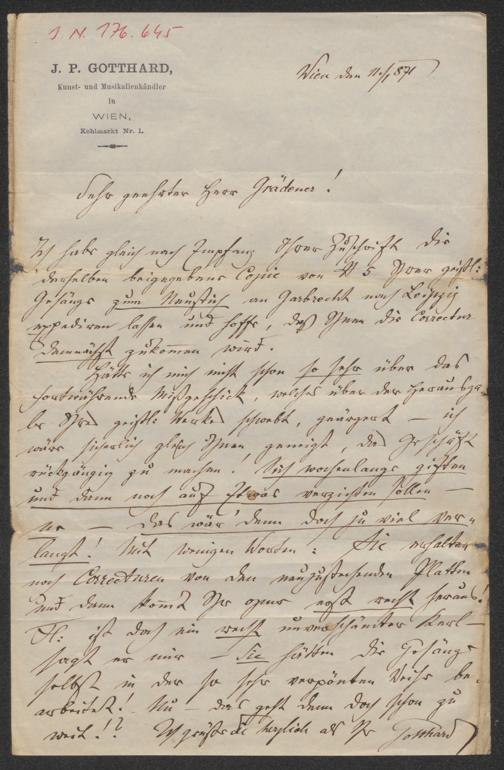 J. N. 176.645
J. P. GOTTHARD,
Kunst- und Musikalienhändler
in
WIEN,
Kohlmarkt Nr. 1.
Wien den 11/1 871
Sehr geehrter Herr Grädener!
Ich habe gleich nach Empfang Ihrer Zuschrift die
derselben beigegebene Copie von № 5 Ihrer geistl:
Gesänge zum Neustich an Garbrecht nach Leipzig
expediren lassen und hoffe, daß Ihnen die Correctur
demnächst zukommen wird.
Hätte ich mich nicht schon so sehr über das
fortwährende Mißgeschick, welches über der Herausga-
be Ihres geistl: Werkes schwebt, geärgert – ich
wäre sicherlich gleich Ihnen geneigt, das Geschäft
rückgängig zu machen! Sich wochenlange giften
und dann noch auf Etwas verzichten sollen –
ne – das wär' denn doch zu viel ver-
langt! Mit wenigen Worten: Sie erhalten
noch Correcturen von den neuzustechenden Platten
und dann kommt Ihr opus erst recht heraus!
H: ist doch ein recht unverschämter Kerl –
sagt er mir Sie hätten die Gesänge
selbst in der so sehr verpönten Weise be-
arbeitet! Nu – das geht denn doch schon zu
weit!! Ich grüße Sie herzlich als Ihr Gotthard